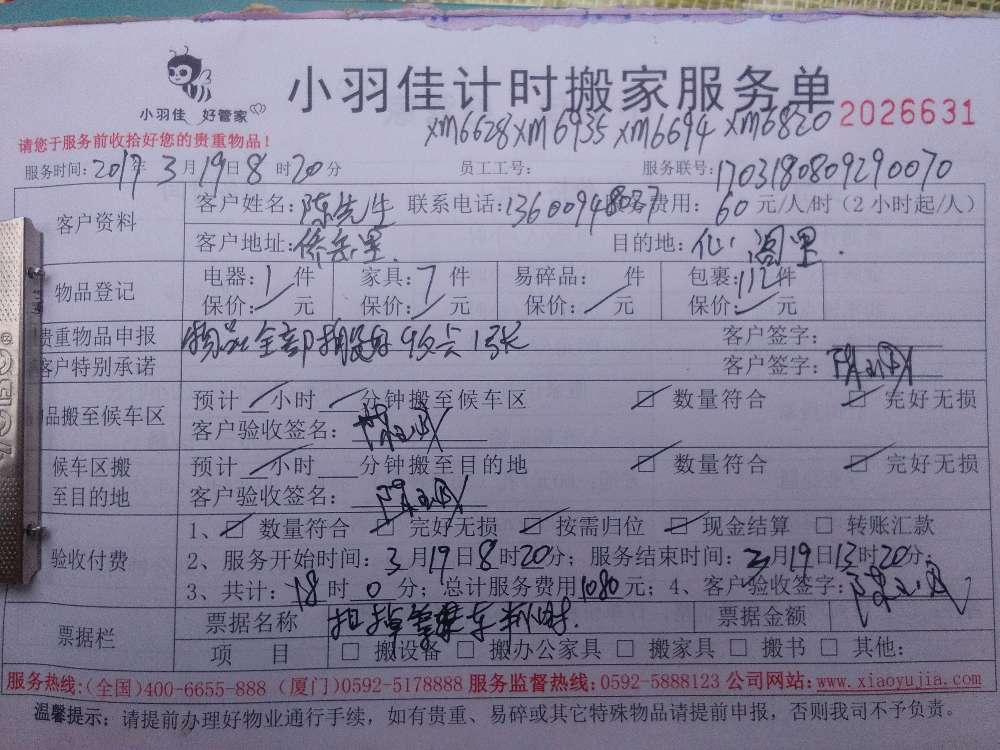 小羽佳 好管家
小羽佳计时搬家服务单
2026631
xm6628 xm6935 xm6694 xm6820
请您于服务前收拾好您的贵重物品!
服务时间:2017年3月19日8时20分 员工工号: 服务联号:1703180809290070
客户资料
客户姓名:陈先生 联系电话:13600948087 服务费用:60元/人/时(2小时起/人)
客户地址:侨岳里 目的地:仙阁里.
物品登记
电器:1件 家具:7件 易碎品: 件 包裹:112件
保价:/元 保价:/元 保价:/元 保价:/元
贵重物品申报 物品全部 客户签字:
客户特别承诺 客户签字:
物品搬至候车区
预计/小时/分钟搬至候车区 数量符合 完好无损
客户验收签名:
候车区搬至目的地
预计/小时 分钟搬至目的地 数量符合 完好无损
客户验收签名:
验收付费
1、数量符合 完好无损 按需归位 现金结算 □ 转账汇款
2、服务开始时间:3月19日8时20分;服务结束时间:3月19日13时20分;
3、共计:18时0分;总计服务费用1080元;4、客户验收签字:
票据栏
票据名称 票据金额
项 目 □ 搬设备 □ 搬办公家具 □ 搬家具 □ 搬书 □ 其他:
服务热线:(全国)400-6655-888 (厦门)0592-5178888 服务监督热线:0592-5888123 公司网站:www.xiaoyujia.com
温馨提示:请提前办理好物业通行手续,如有贵重、易碎或其它特殊物品请提前申报,否则我司不予负责。